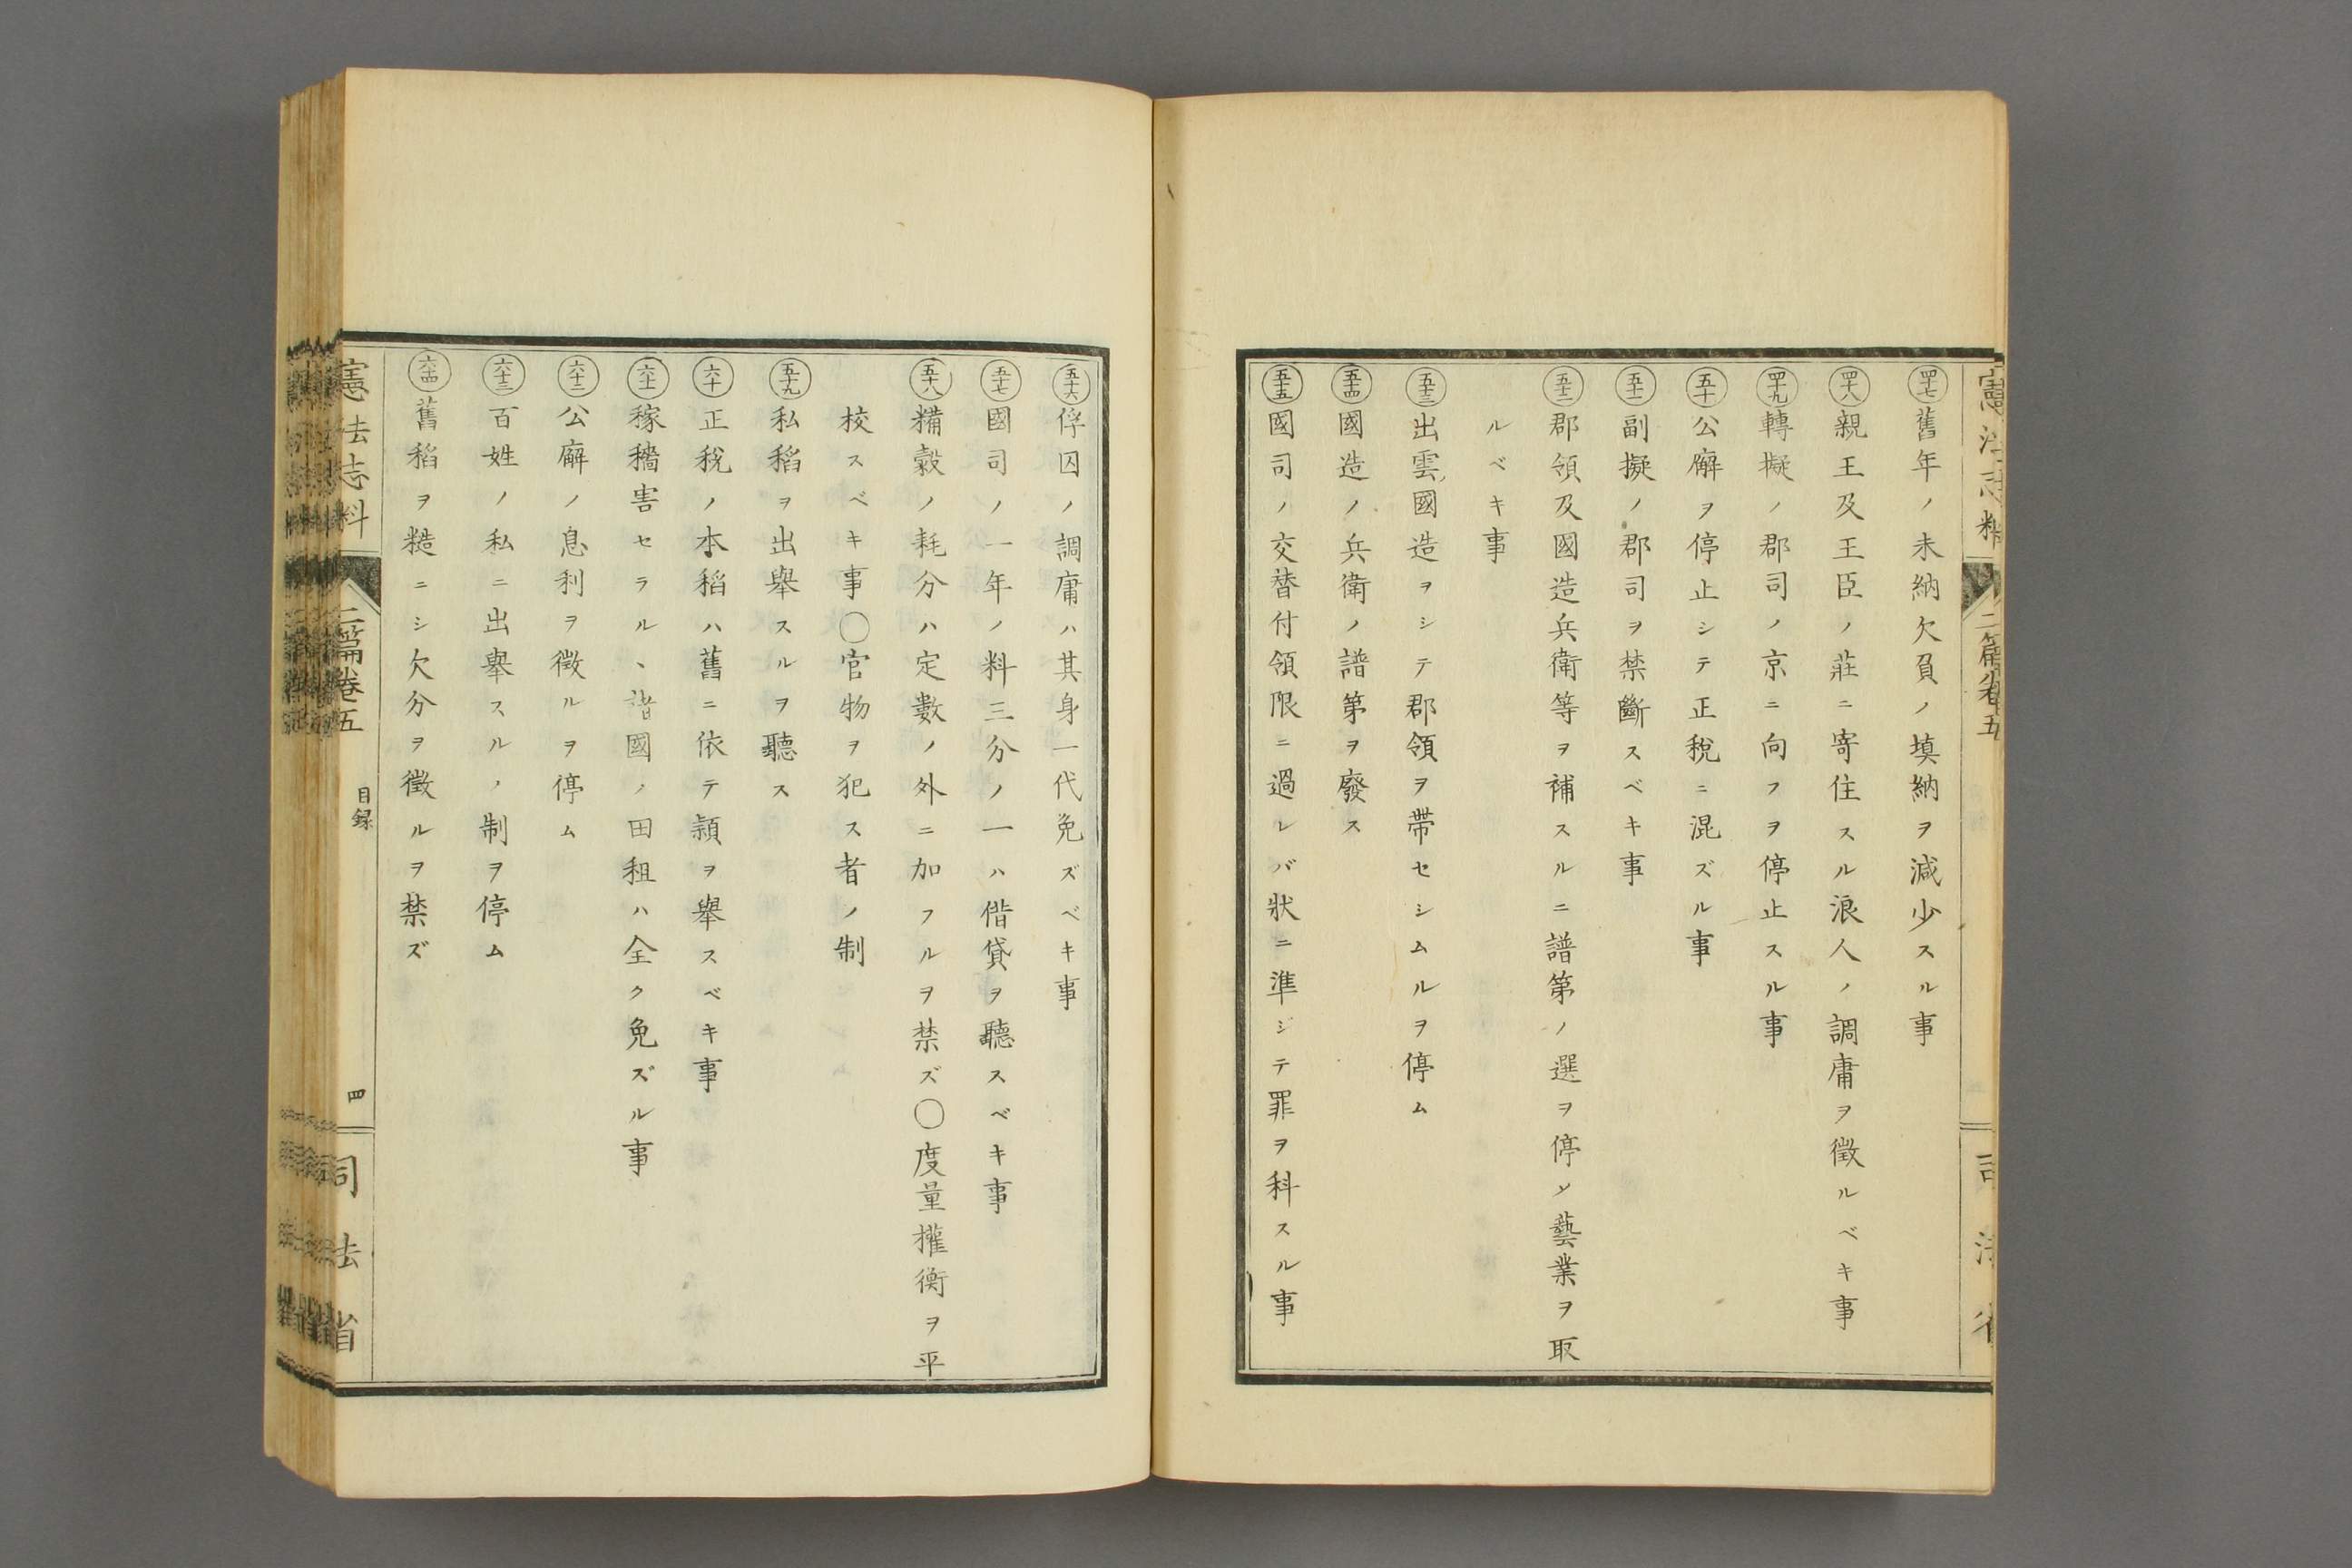 憲法志料 二篇卷五 司法省
四十七 舊年ノ未納欠負ノ填納ヲ減少スル事
四十八 親王及王臣ノ莊ニ寄住スル浪人ノ調庸ヲ徵ルベキ事
四十九 轉擬ノ郡司ノ京ニ向フヲ停止スル事
五十 公廨ヲ停止シテ正稅ニ混ズル事
五十一 副擬ノ郡司ヲ禁斷スベキ事
五十二 郡領及國造兵衛等ヲ補スルニ譜第ノ選ヲ停メ藝業ヲ取
ルベキ事
五十三 出雲國造ヲシテ郡領ヲ帶セシムルヲ停ム
五十四 國造ノ兵衛ノ譜第ヲ廢ス
五十五 國司ノ交替付領限ニ過レバ狀ニ準ジテ罪ヲ科スル事
五十六 俘囚ノ調庸ハ其身一代免ズベキ事
五十七 國司ノ一年ノ料三分ノ一ハ偕貸ヲ聽スベキ事
五十八 糒穀ノ耗分ハ定數ノ外ニ加フルヲ禁ズ○度量權衡ヲ平
校スベキ事○官物ヲ犯ス者ノ制
五十九 私稻ヲ出舉スルヲ聽ス
六十 正稅ノ本稻ハ舊ニ依テ穎ヲ舉スベキ事
六十一 稼穡害セラルヽ諸國ノ田租ハ全ク免ズル事
六十二 公廨ノ息利ヲ徵ルヲ停ム
六十三 百姓ノ私ニ出舉スルノ制ヲ停ム
六十四 舊稻ヲ糙ニシ欠分ヲ徵ルヲ禁ズ
憲法志料 二篇卷五 目録 四 司法省